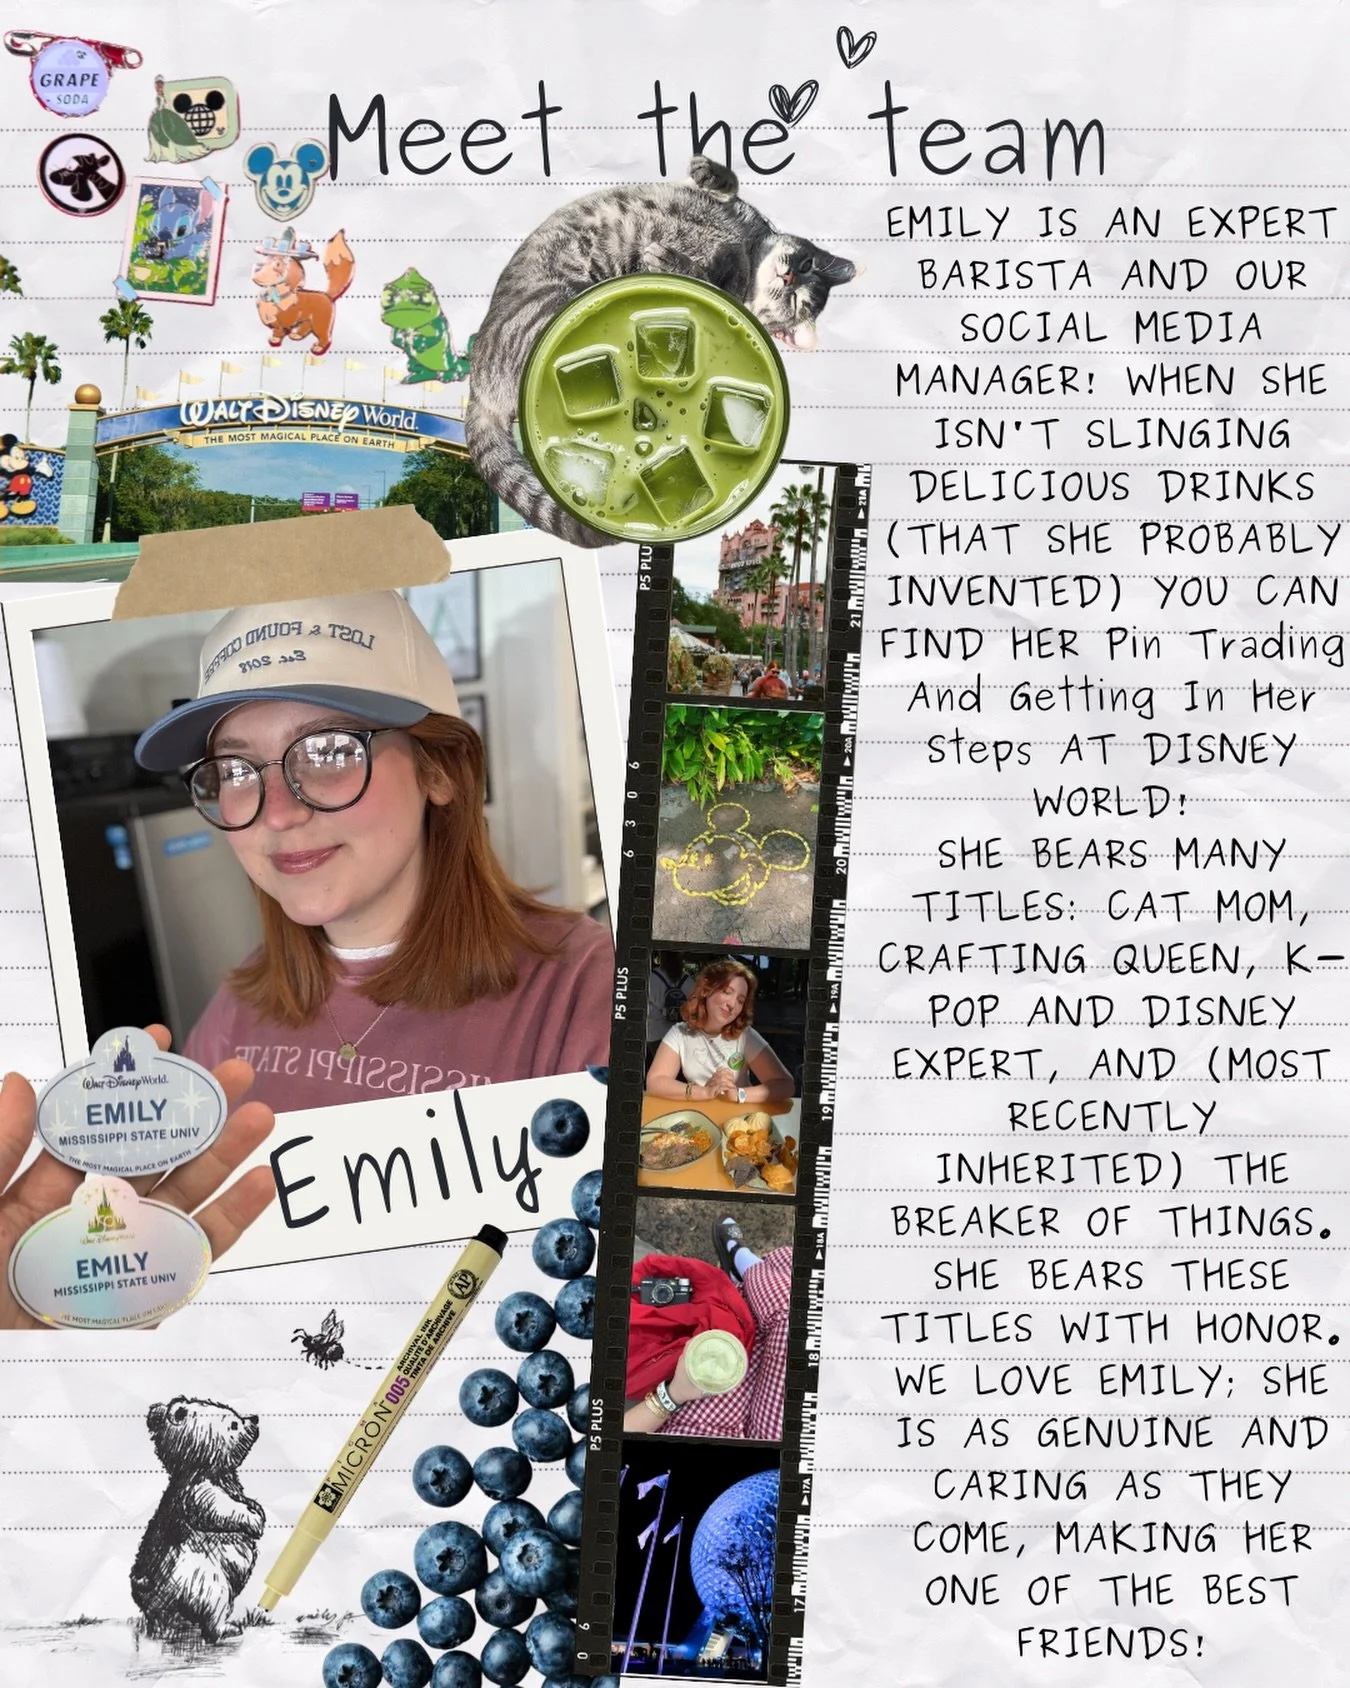 GRAPE
SODA
Meet the team
WALT DISNEY World.
THE MOST MAGICAL PLACE ON EARTH
LOST & FOUND COFFEE
Est. 2018
MISSISSIPPI STATE
Walt Disney World.
EMILY
MISSISSIPPI STATE UNIV
THE MOST MAGICAL PLACE ON EARTH
Walt Disney World.
EMILY
MISSISSIPPI STATE UNIV
THE MOST MAGICAL PLACE ON EARTH
Emily
AP
ARCHIVAL INK
QUALITÉ D'ARCHIVAGE
TINTA DE ARCHIVE
MICRON 005
P5 PLUS
6 3 0 6
P5 PLUS
P5 PLUS
0 6
21A
21
20A
20
19A
19
18A
18
17A
17
EMILY IS AN EXPERT
BARISTA AND OUR
SOCIAL MEDIA
MANAGER! WHEN SHE
ISN'T SLINGING
DELICIOUS DRINKS
(THAT SHE PROBABLY
INVENTED) YOU CAN
FIND HER Pin Trading
And Getting In Her
Steps AT DISNEY
WORLD!
SHE BEARS MANY
TITLES: CAT MOM,
CRAFTING QUEEN, K-
POP AND DISNEY
EXPERT, AND (MOST
RECENTLY
INHERITED) THE
BREAKER OF THINGS.
SHE BEARS THESE
TITLES WITH HONOR.
WE LOVE EMILY; SHE
IS AS GENUINE AND
CARING AS THEY
COME, MAKING HER
ONE OF THE BEST
FRIENDS!